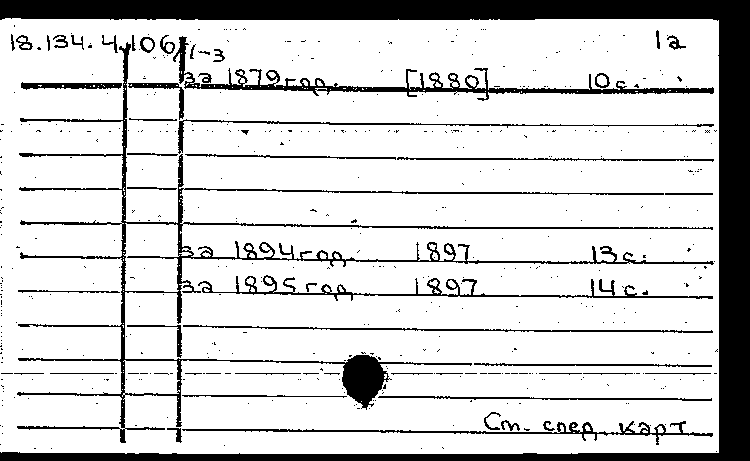 18.134.4.106/1-3 1a
за 1879 год. [1880] 10 с.
за 1894 год. 1897. 13 с.
за 1895 год 1897. 14 с.
См. след. карт.